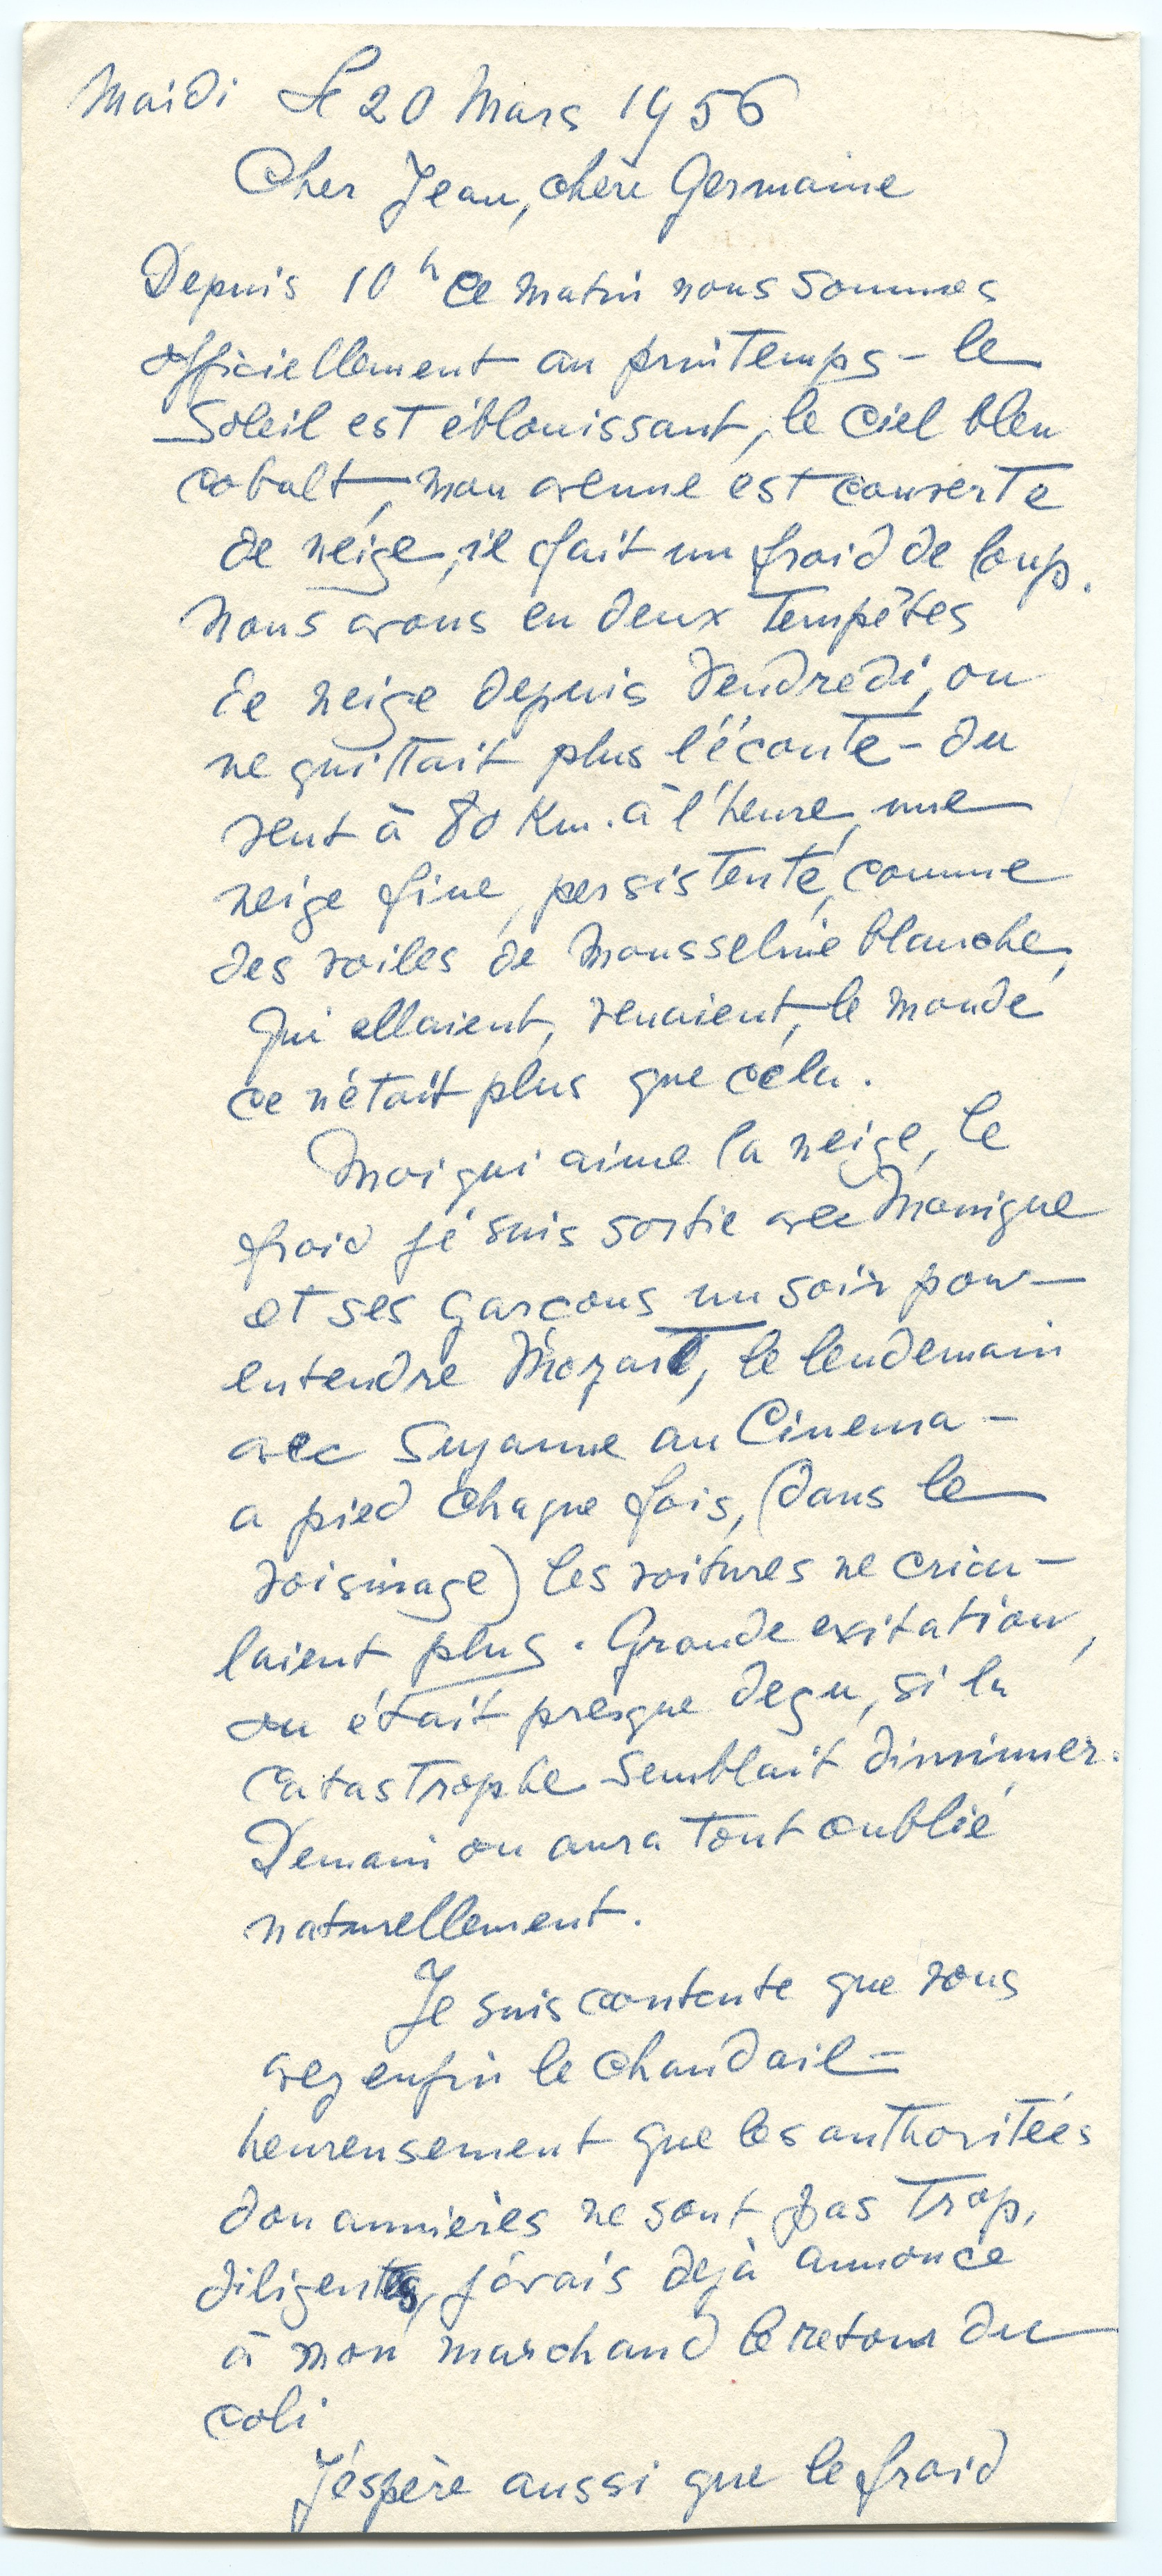 Maidi Le 20 Mars 1956
Cher Jean, chère Germaine
Depuis 10h ce matin nous sommes
officiellement au printemps – le
Soleil est éblouissant, le ciel bleu
cobalt, mon avenue est couverte
de neige, il fait un froid de loup.
Nous avons eu deux tempêtes
de neige depuis Vendredi, on
ne quittait plus l'écoute – du
vent à 80 Km. à l'heure, une
neige fine, persistente, comme
des voiles de Mousseline blanche,
qui allaient, venaient, le monde
ce n'était plus que cela.
Moi qui aime la neige, le
froid je suis sortie avec Monique
et ses garçons un soir pour
entendre Mozart, le lendemain
avec Suzanne au Cinema –
a pied chaque fois, (dans le
voisinage) les voitures ne circu-
laient plus. Grande exitation,
on était presque deçu, si la
catastrophe semblait diminuer.
Demain on aura tout oublié
naturellement.
Je suis contente que vous
avez enfin le chandail –
heureusement que les authoritées
douannieres ne sont pas trop
diligentes, j'avais dejà annoncé
à mon marchand le retour du
coli
J'éspère aussi que le froid